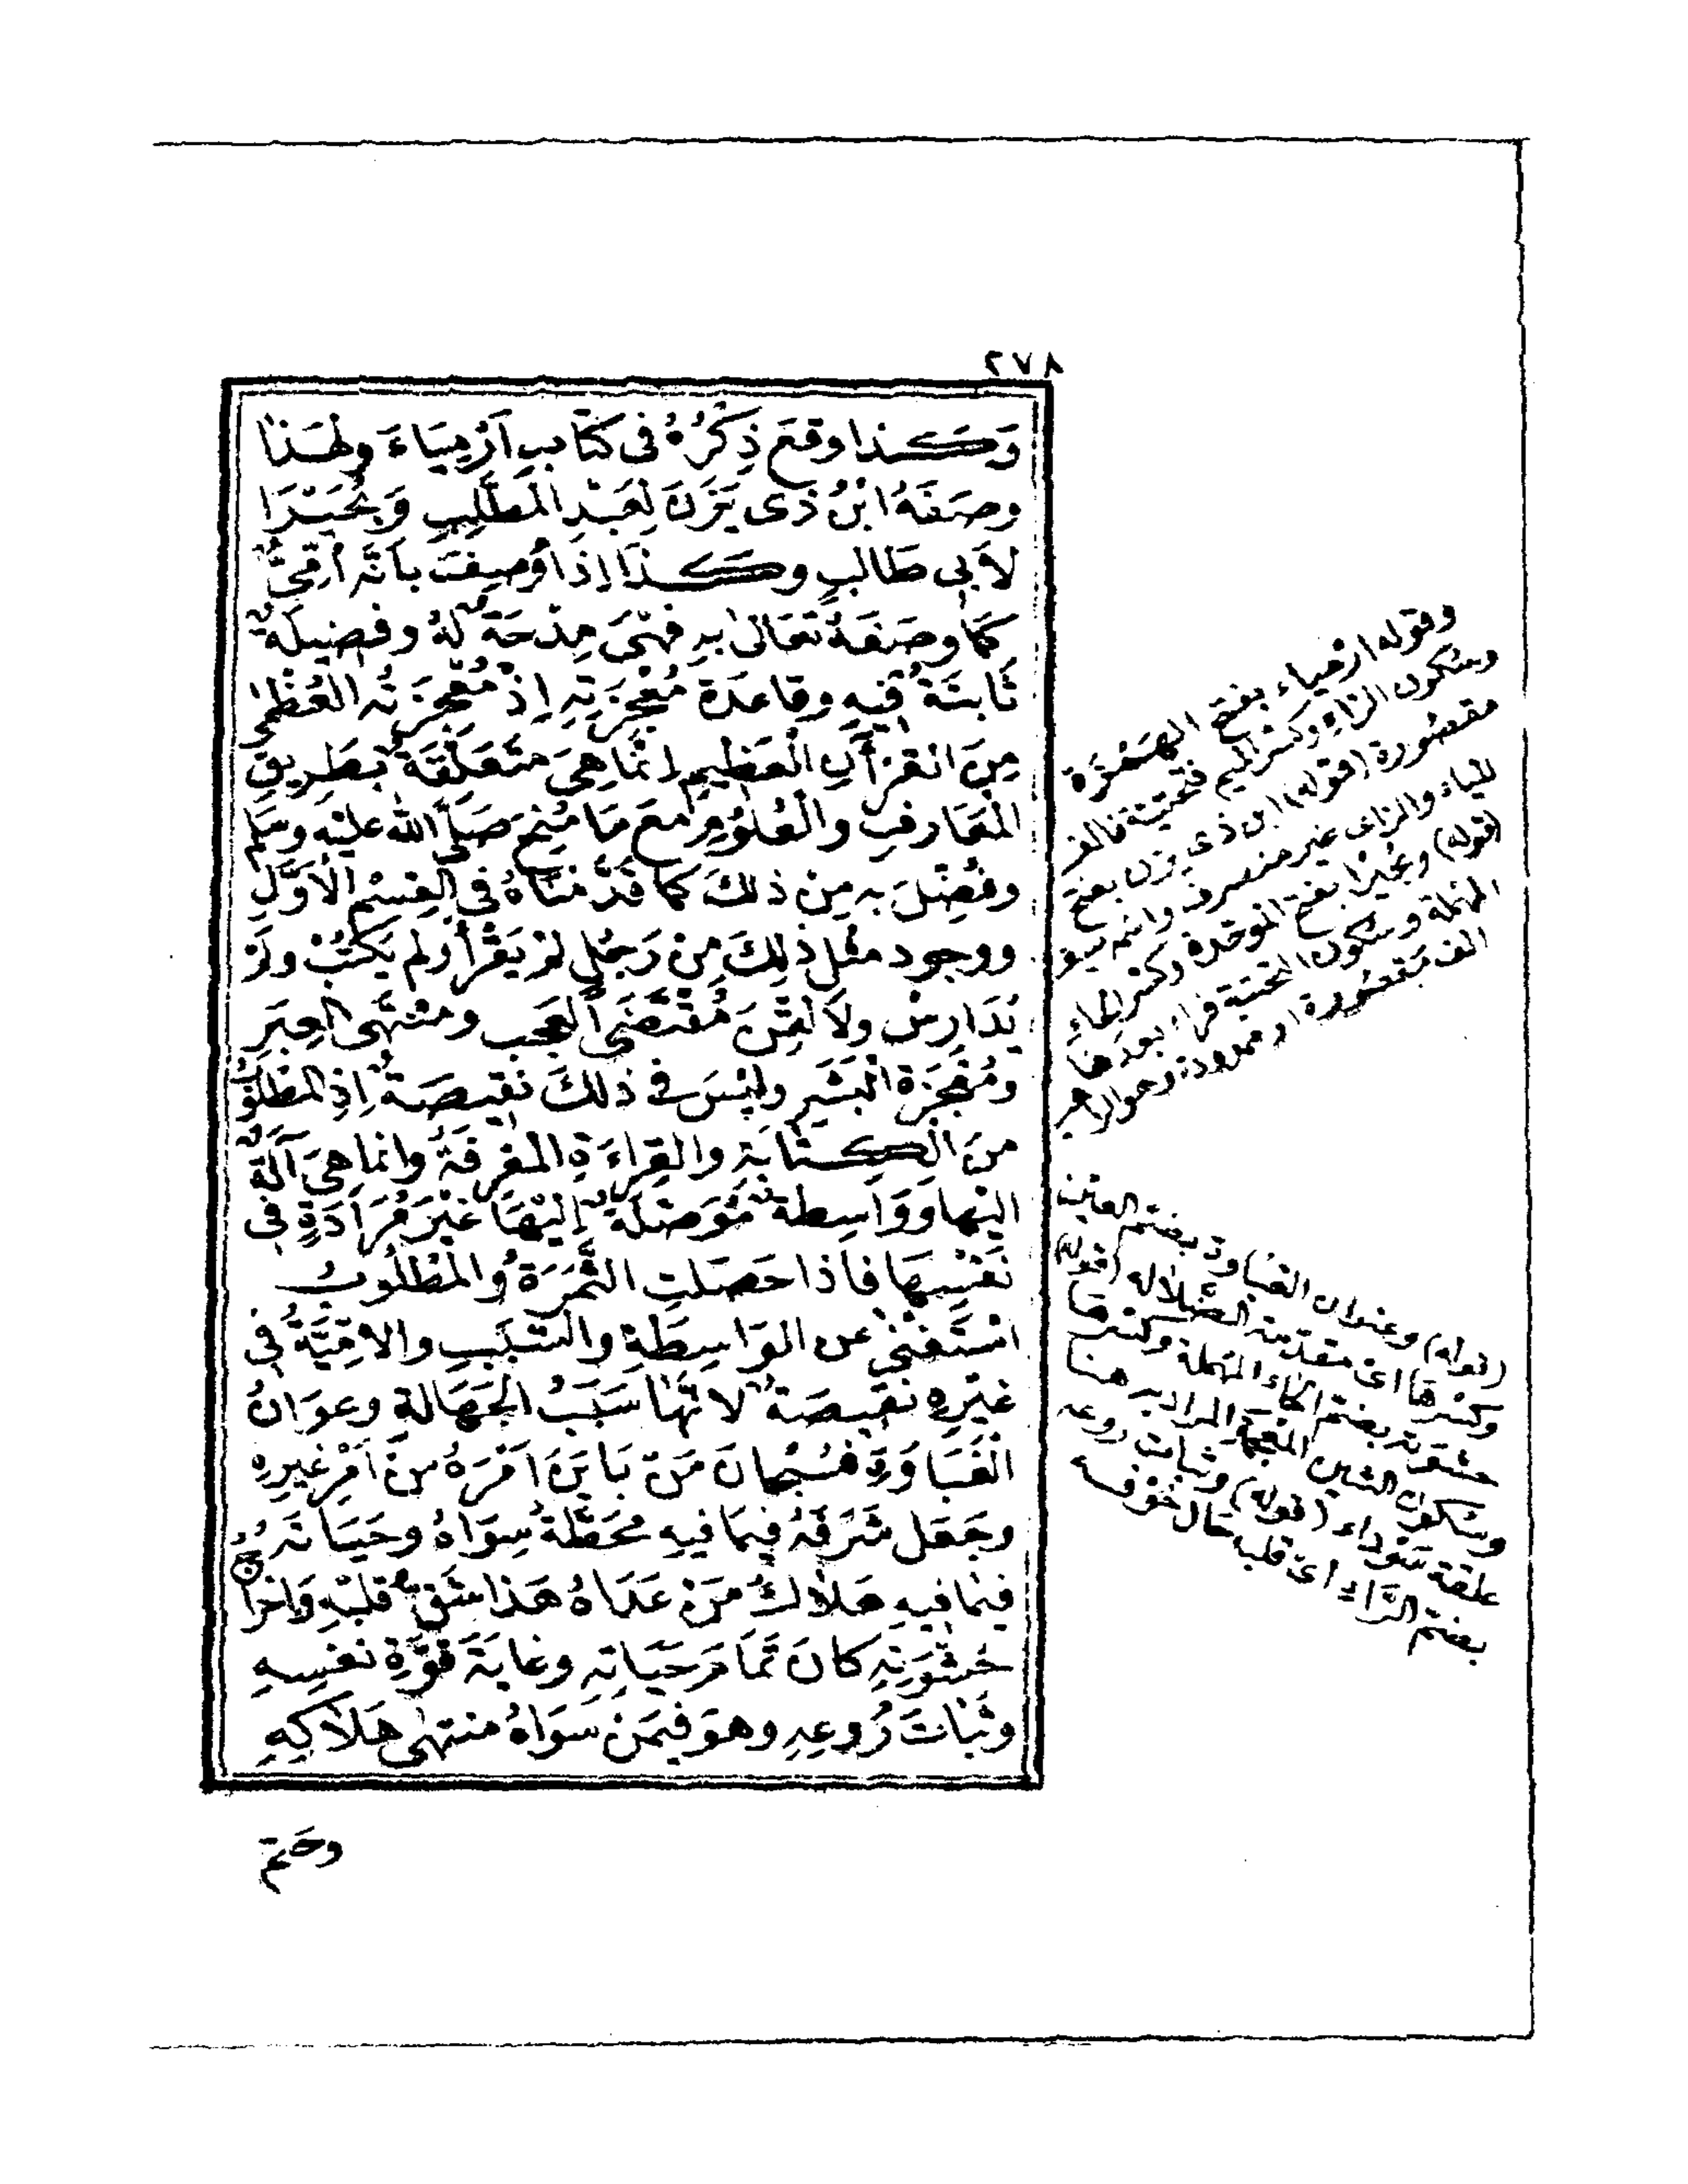 ٢٧٨
وَكَذا وقعَ ذِكْرُهُ فى كتابِ اَرْمِيَاءَ ولهَذا
وصَفَهُ ابْنُ ذى يَزَنَ لِعَبْدِ المطَّلِبِ وَبُحَيْرَا
لأَبى طَالبٍ وكَذا اِذَا وُصِفَ بانَّه اُمِّىٌّ
كما وصَفَهُ تعَالىٰ بهِ فَهْىَ مِدْحَةٌ لهُ وفضِيلَةٌ
ثَابتَةٌ فيهِ وقاعدَة مُعْجِزَتِهِ اِذْ مُعْجِزَتُه العُظْمٰى
مِنَ القرْأٰنِ الْعَظِيمِ اِنَّمَا هِىَ متَعَلِّقَةٌ بطَرِيقِ
المعَارفِ والْعُلُوْمِ مَعَ مَا مُنِحَ صَلَّى الله عليْهِ وسَلم
وفُضِّلَ بهِ مِنْ ذلكَ كما قَدَّمْنَاهُ فى القِسْم الْأوَّلِ
ووجود مثْل ذٰلِكَ مِنْ رَجُلٍ لَمْ يَقْرَأْ ولم يَكتُبْ ولَمْ
يُدَارِسْ ولَا لُقِّنَ مُقْتَضَى العَجَب ومنْتَهَى العِبَرِ
ومُعْجِزَة الْبَشَرِ وليْسَ فى ذلكَ نَقِيصَةٌ اِذِ المطْلُوْبُ
مِنَ الْكِتَابَةِ والقِرَاءَةِ المعْرِفَةُ وانما هِىَ آلَةٌ
اليْها وَوَاسِطةٌ مُوَصِّلَةٌ إليْهَا غَيْرَ مُرَادَةٍ فى
نَفْسِهَا فَاذا حَصَلتِ الثَّمَرَةُ والمطْلُوبُ
اسْتَغنَى عن الوَاسِطَةِ والسَّبَبِ والاُمِّيَّةُ فى
غيْرِهِ نقِيصَةٌ لانَّهَا سَبَبُ الجَهَالَةِ وعنوَانُ
الْغَبَاوَةِ فسُبْحانَ مَنْ بَايَنَ اَمْرَهُ مِنْ اَمْرِ غيرِهِ
وجَعَل شَرَفَهُ فِيمَا فيهِ مَحَطَّةُ سِوَاهُ وحَيَاتَهُ
فيْمَا فيهِ هَلَاكُ مَنْ عَدَاهُ هَذا شَقُّ قلبْهِ وَاخرَاجُ
حُشْوَتِهِ كانَ تَمَامَ حَيَاتِهِ وغايَةَ قُوَّةِ نفسِهِ
وثبَاتَ رُوعِهِ وهوَ فيمَنْ سِوَاهُ منتهى هَلَاكِهِ
وحَتم
وقوله ارمياء بفتح الهَمْزة
وسكون الراء وكسر الميم فتحتيّة فالف
مقصورة (قوله) ابن ذى يزن بفتح
الياء والزاى غير منصرف
(قوله) وبُحيْرا بفتح الموحّدة وكسر الحاء
المهملة وسكون التحتيّة فراء بعدهَا
الف مَقصُورة او ممدودة
(قوله) وعنوان الغباوة بضم العين
وكسْرهَا اى مقدّمة الضَّلالة (قوله)
حشوته بضم الحاء المهملة وكسْرها
وسكون الشين المعجمة المراد به هنا
علقة سَوْداء (قوله) وثبات روعه
بضم الرَّاء اى قلبه حَال خَوْفه